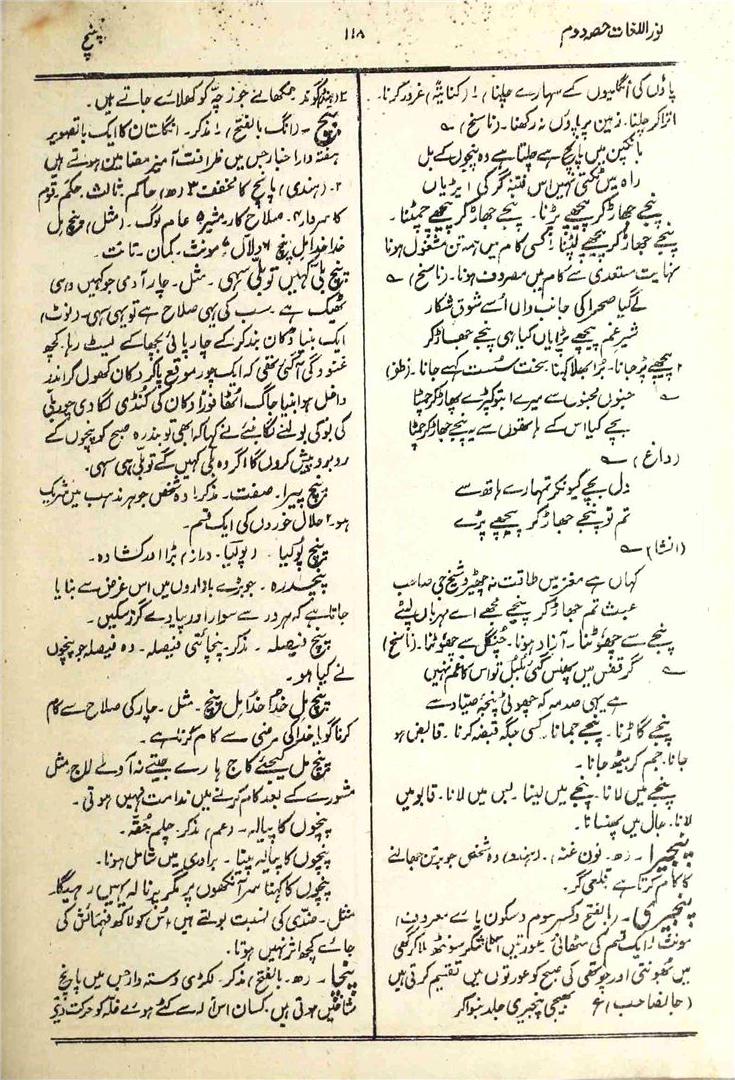 نور اللغات حصہ دوم
۱۱۸
پنچ
پاؤں کی انگلیوں کے سہارے چلنا ۱۔ (کنایۃً) غرور کرنا۔
اتراکر چلنا۔ زمین پر پاؤں نہ رکھنا۔ (ناسخ) ؎
بانکپن میں پانچ سے چلتا ہے وہ پنجوں کے بل
راہ میں ٹکتی نہیں اس فتنہ گر کی ایڑیاں
پنجے جھاڑ کر پیچھے پڑنا۔ پنجے جھاڑ کر پیچھے چمٹنا۔
پنجے جھاڑ کر پیچھے لپٹنا ۱ کسی کام میں ہمہ تن مشغول ہونا
نہایت مستعدی سے کام میں مصروف ہونا۔ (ناسخ) ؎
لے گیا صحرا کی جانب واں اُسے شوق شکار
شیر غم پیچھے پڑا یاں کیا ہی پنجے جھاڑ کر
۲ پیچھے پڑ جانا۔ بُرا بھلا کہنا۔ سخت سُست کہے جانا۔ (ظفر)
؎ جنوں مجنوں سے میرے اب تو کپڑے پھاڑ کر چمٹا
بچے کیا اس کے ہاتھوں سے یہ پنجے جھاڑ کر چمٹا
(داغ) ؎
دل بچے کیونکر تمہارے ہاتھ سے
تم تو پنجے جھاڑ کر پیچھے پڑے
(انشا) ؎
کہاں ہے مغز میں طاقت نہ چھیڑو شیخ جی صاحب
عبث تم جھاڑ کر پنجے مجھے اے مہرباں لپٹے
پنجے سے چھوٹنا۔ آزاد ہونا۔ چنگل سے چھوٹنا۔ (ناسخ)
؎ گر قفس میں پھنس گئی بلبل تو اس کا غم نہیں
ہے یہی صدمہ کہ چھوٹی پنجۂ صیاد سے
پنجے گاڑنا۔ پنجے جمانا۔ کسی جگہ قبضہ کرنا۔ قابض ہو
جانا۔ جم کر بیٹھ جانا۔
پنجے میں لانا۔ پنجے میں لینا۔ بس میں لانا۔ قابو میں
لانا۔ جال میں پھنسانا۔
پنجیرا۔ (ھ۔ نون غنہ)۔ (ہندو) وہ شخص جو برتن جھالنے
کا کام کرتا ہے قلعی گر۔
پنجیری۔ (بالفتح و کسر سوم و سکون یائے معروف)
مونث ۱ ایک قسم کی مٹھائی۔ عورتیں آٹا شکر سونٹھ ملا کر گھی
میں بھونتی اور چوتھی کی صبح کو عورتوں میں تقسیم کرتی ہیں
(جانصاحب) ع بھیجی پنجیری جلد بنوا کر
۲ (ہندو) گوند مکھانے جو زچہ کو کھلائے جاتے ہیں۔
پنچ۔ (انگ بالفتح) ۱ مذکر۔ انگلستان کا ایک باتصویر
ہفتہ وار اخبار جس میں ظرافت آمیز مضامین ہوتے ہیں
۲۔ (ہندی) پانچ کا مخفف ۳ (ھ) حاکم۔ ثالث۔ حکم۔ قوم
کا سردار ۴۔ صلاح کار۔ مشیر ۵ عام لوگ۔ (مثل) پنچ مل
خدا خدا مل پنچ ۶ دلال ۷ مونث۔ کمان۔ تانت۔
پنچ بلی کہیں تو بلی سہی۔ مثل۔ چار آدمی جو کہیں وہی
ٹھیک ہے۔ سب کی یہی صلاح ہے تو یہی سہی۔ (نوٹ)
ایک بنیا دکان بند کر کے چارپائی بچھا کے لیٹ رہا۔ کچھ
غنودگی آ گئی تھی کہ ایک چور موقع پا کر دکان کھول کر اندر
داخل ہوا بنیا جاگ اٹھا فوراً دکان کی کُنڈی لگا دی چور بلی
کی بولی بولنے لگا بنئے نے کہا کہ ابھی تو بند رہ صبح کو پنچوں کے
روبرو پیش کروں گا اگر وہ بلی کہیں گے تو بلی ہی سہی۔
پنچ پیرا۔ صفت۔ مذکر ۱ وہ شخص جو ہر مذہب میں شریک
ہو۔ ۲ حلال خوروں کی ایک قسم۔
پنچ پُوکیا۔ دراز۔ بڑا اور کشادہ۔
پنچدرہ۔ جو بڑے بازاروں میں اس غرض سے بنایا
جاتا ہے کہ ہر در سے سوار اور پیادے گزر سکیں۔
پنچ فیصلہ۔ مذکر۔ پنچائتی فیصلہ۔ وہ فیصلہ جو پنچوں
نے کیا ہو۔
پنچ مل خدا خدا مل پنچ۔ مثل۔ چار کی صلاح سے کام
کرنا گویا خدا کی مرضی سے کام کرنا ہے۔
پنچ مل کیجئے کاج ہارے جیتے نہ آوے لاج۔ مثل
مشورے کے بعد کام کرنے میں ندامت نہیں ہوتی۔
پنچوں کا پیالہ۔ (عم) مذکر۔ چلم حُقہ۔
پنچوں کا پیالہ پینا۔ برادری میں شامل ہونا۔
پنچوں کا کہنا سر آنکھوں پر مگر پرنالہ یہیں رہیگا۔
مثل۔ ضدی کی نسبت بولتے ہیں، اُس کو لاکھ فہمائش کی
جائے کچھ اثر نہیں ہوتا۔
پنچا۔ (ھ۔ بالفتح) مذکر۔ لکڑی دستہ دار جس میں پانچ
شاخیں ہوتی ہیں۔ کسان اس سے کٹے ہوئے غلہ کو حرکت دیتے